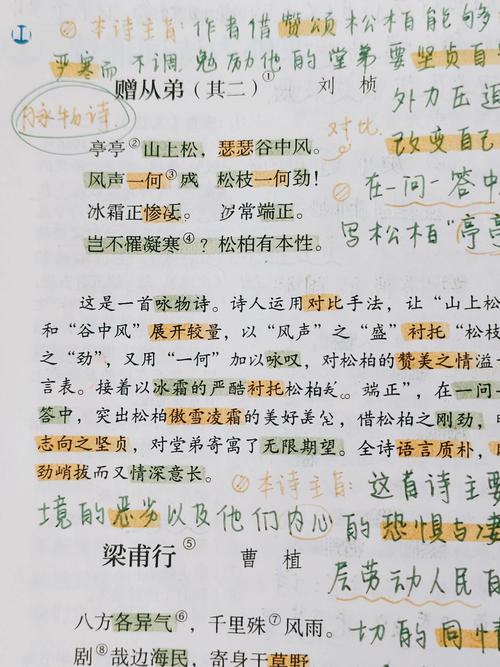 本诗主旨：作者借赞颂松柏能够
严寒而不调，勉励他的堂弟要坚贞自
赠从弟（其二）① 刘桢
外力压迫
咏物诗
对比
改变自己
亭亭②山上松，瑟瑟谷中风。
风声一何③盛，松枝一何劲！
在一问一答中
冰霜正惨凄，岁常端正。
写松柏“亭亭
岂不罹凝寒④？松柏有本性。
这是一首咏物诗。诗人运用对比手法，让“山上松
和“谷中风”展开较量，以“风声”之“盛”衬托“松枝
之“劲”，又用“一何”加以咏叹，对松柏的赞美之情溢
言表。接着以冰霜的严酷衬托松柏 端正”，在一问一
答中，突出松柏傲雪凌霜的美好美 ，借松柏之刚劲，
志向之坚贞，对堂弟寄寓了无限期望。全诗语言质朴，
劲峭拔而又情深意长。
本诗主旨：这首诗主要
境的恶劣以及他们内心的恐惧与凄
梁甫行⑤ 曹植
层劳动人民的
八方各异气⑥，千里殊⑦风雨。
切的同情
剧⑧哉边海民，寄身于草野